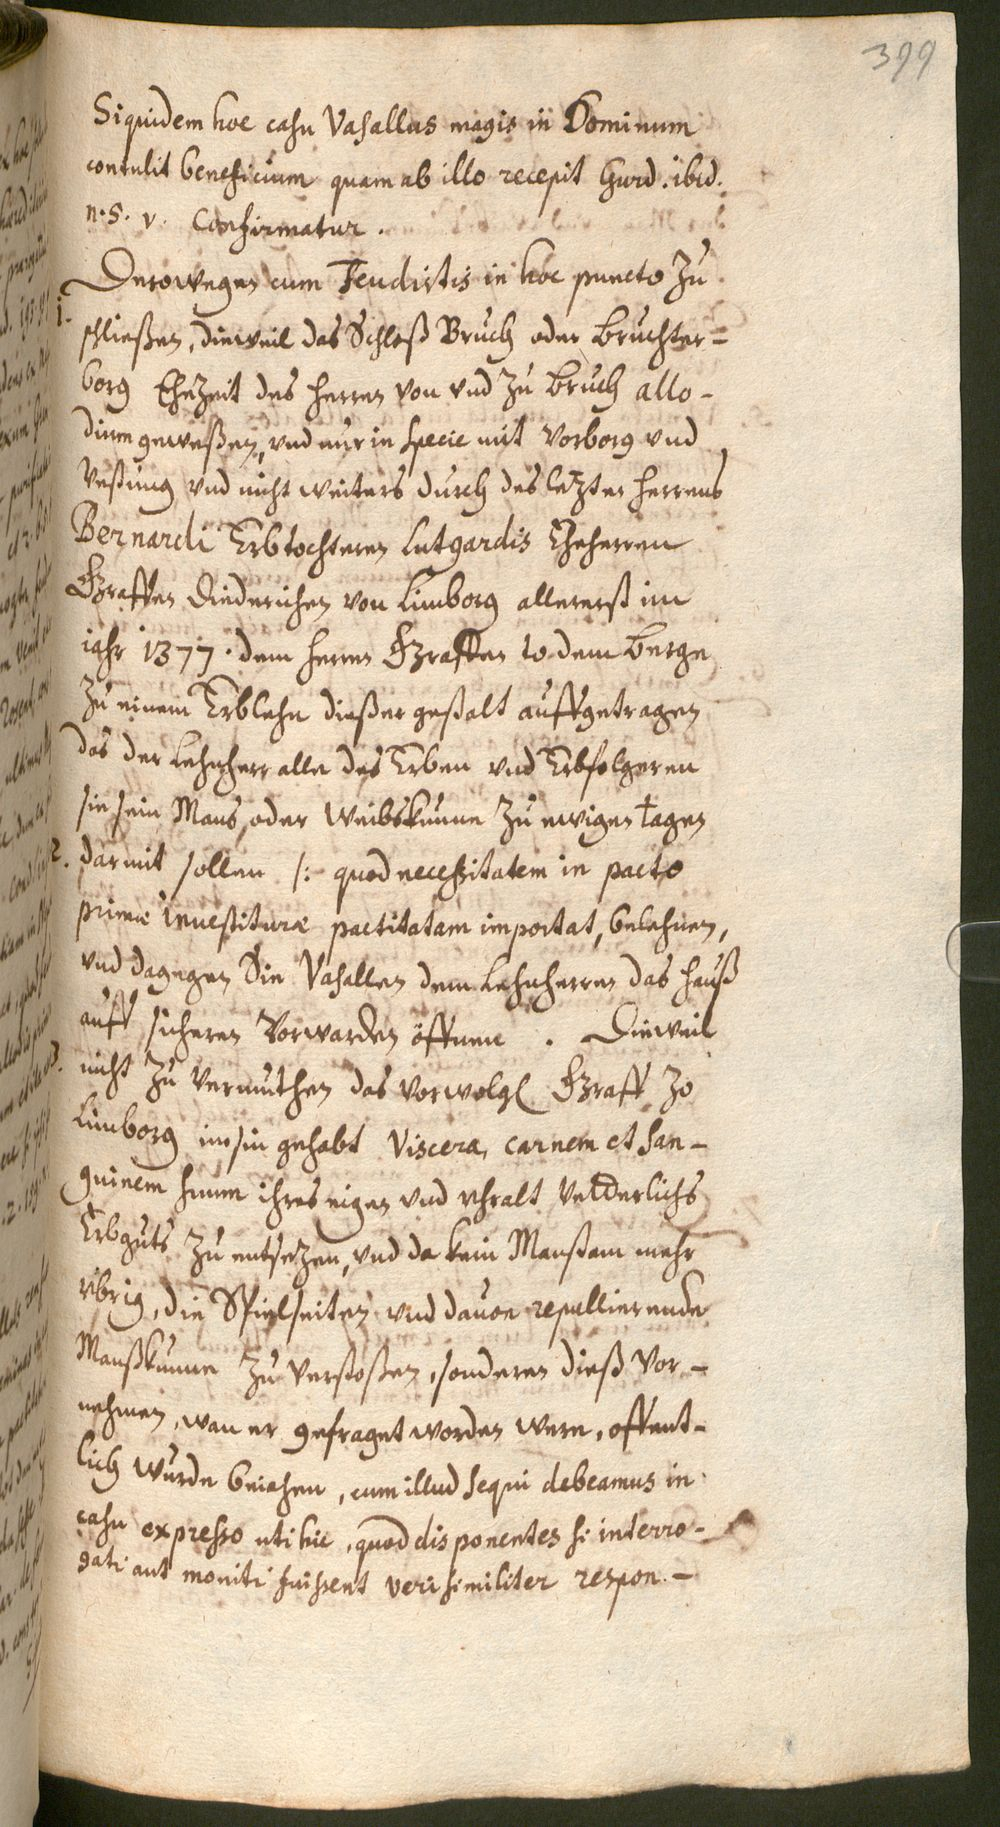 399
Siquidem hoc casu Vasallus magis in Dominum
contulit beneficium quam ab illo recepit Hurd. ibid.
n. 5. v. Confirmatur.
Derowegen cum Feudistis in hoc puncto zu
1. schließen, dieweil das Schloß Bruch oder Bruchter=
borg Ehezeit des herren von vnd zu Bruch allo-
dium geweßen, vnd nur in specie mit Vorborg vnd
Vestung vnd nicht weiters durch des letzten herrens
Bernardi Erbtochteren Lutgardis Eheherren
Graffen Diederichen von Limborg allererst im
jahr 1377. dem herren Graffen to dem Berge
zu einem Erblehn dießer gestalt auffgetragen
das der Lehnherr alle des Erben vnd Erbfolgeren
sie sein Mans oder Weibskunne zu ewigen tagen
2. darmit sollen /: quod necessitatem in pacto
primæ inuestituræ pactitatam importat, belehnen,
vnd dagegen die Vasallen dem Lehnherren das hauß
auff sicheren Vorwarden öffnen. Dieweil
3. nicht zu vermuthen das vorwolgl Graff zo
Limborg im sin gehabt Viscera, carnem et san-
guinem suum ihres eigen vnd vhralt Vetderlichs
Erbguts zu entsetzen, vnd da kein Manßam mehr
vbrig, die Spielseiten vnd dauon repullierende
Manßkunne zu verstoßen, sonderen dieß Vor-
nehmen, wan er gefraget worden were, offent-
lich wurde beiahen, cum illud sequi debeamus in
casu expresso uti hic, quod disponentes si interro-
gati aut moniti fuissent verisimiliter respon-